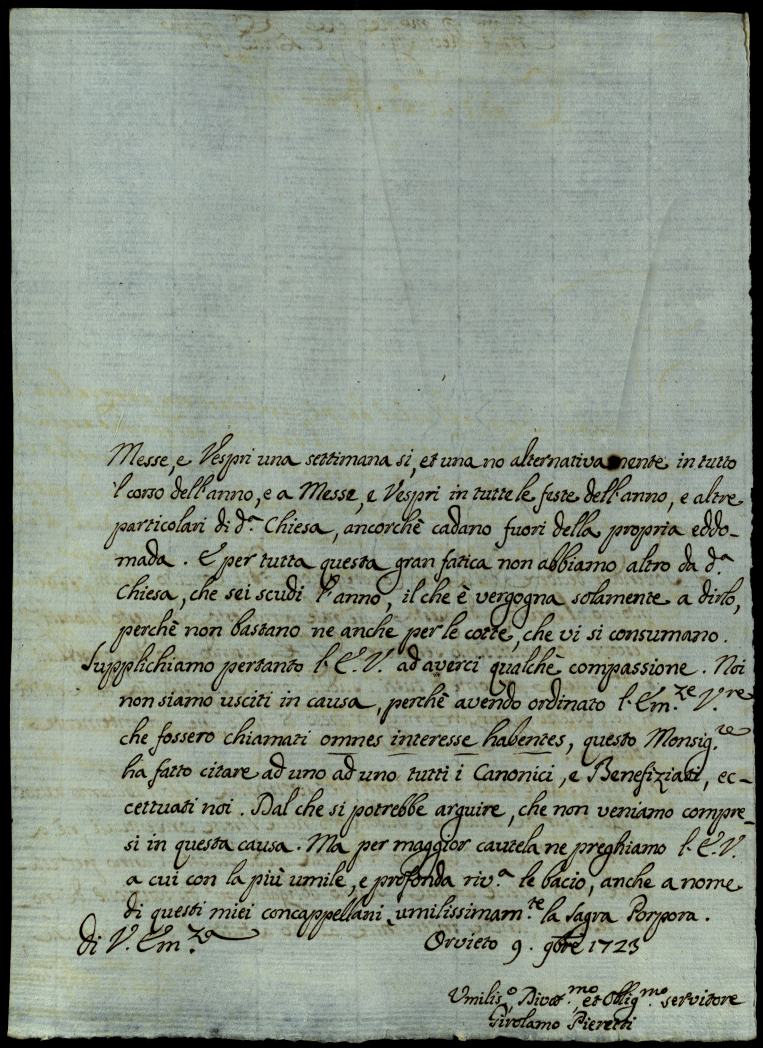 Messe, e Vespri una settimana si, et una no alternativamente in tutto
'l corso dell'anno, e a Messe, e Vespri in tutte le feste dell'anno, e altre
particolari di d.ª Chiesa, ancorchè cadano fuori della propria eddo-
mada. E per tutta questa gran fatica non abbiamo altro da d.ª
Chiesa, che sei scudi l'anno, il che è vergogna solamente a dirlo,
perchè non bastano ne anche per le cotte, che vi si consumano.
Supplichiamo pertanto l'E.V. ad averci qualchè compassione. Noi
non siamo usciti in causa, perchè avendo ordinato l'Em.ze V.re
che fossero chiamati omnes interesse habentes, questo Monsig.re
ha fatto citare ad uno ad uno tutti i Canonici, e Benefiziati, ec-
cettuati noi. Dal che si potrebbe arguire, che non veniamo compre-
si in questa causa. Ma per maggior cautela ne preghiamo l'E.V.
a cui con la più umile, e profonda riv.ª le bacio, anche a nome
di questi miei concappellani, umilissimam.te la Sagra Porpora.
Di V. Em.za Orvieto 9. 9bre 1723
Umilis.o Divot.mo, et Obblig.mo servitore
Girolamo Pieretti